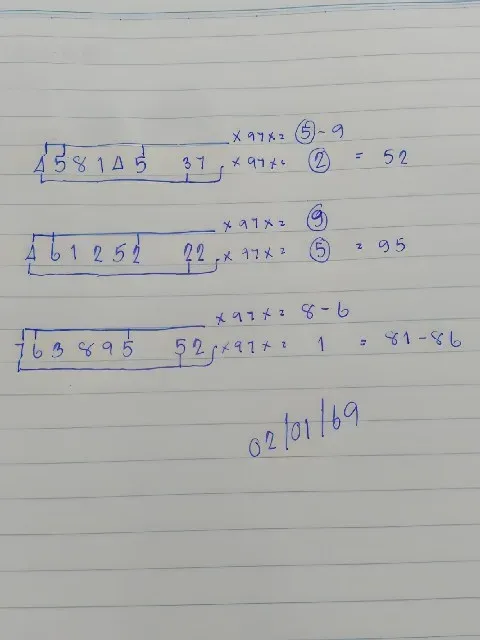 × 97 × = 5 - 9
458145 37 × 97 × = 2 = 52
× 97 × = 9
461252 22 × 97 × = 5 = 95
× 97 × = 8 - 6
763895 52 × 97 × = 1 = 81 - 86
02/01/69